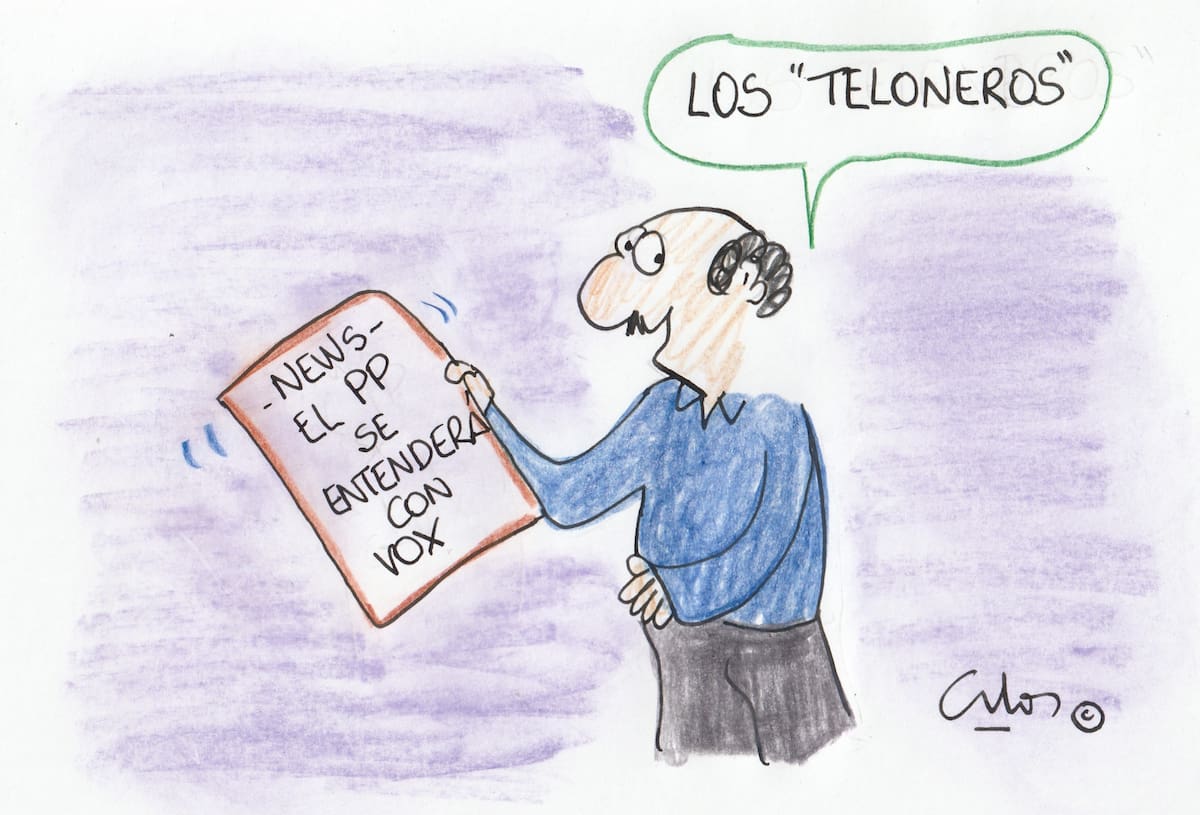 LOS "TELONEROS"
-NEWS-
EL PP
SE
ENTENDERA
CON
VOX
©